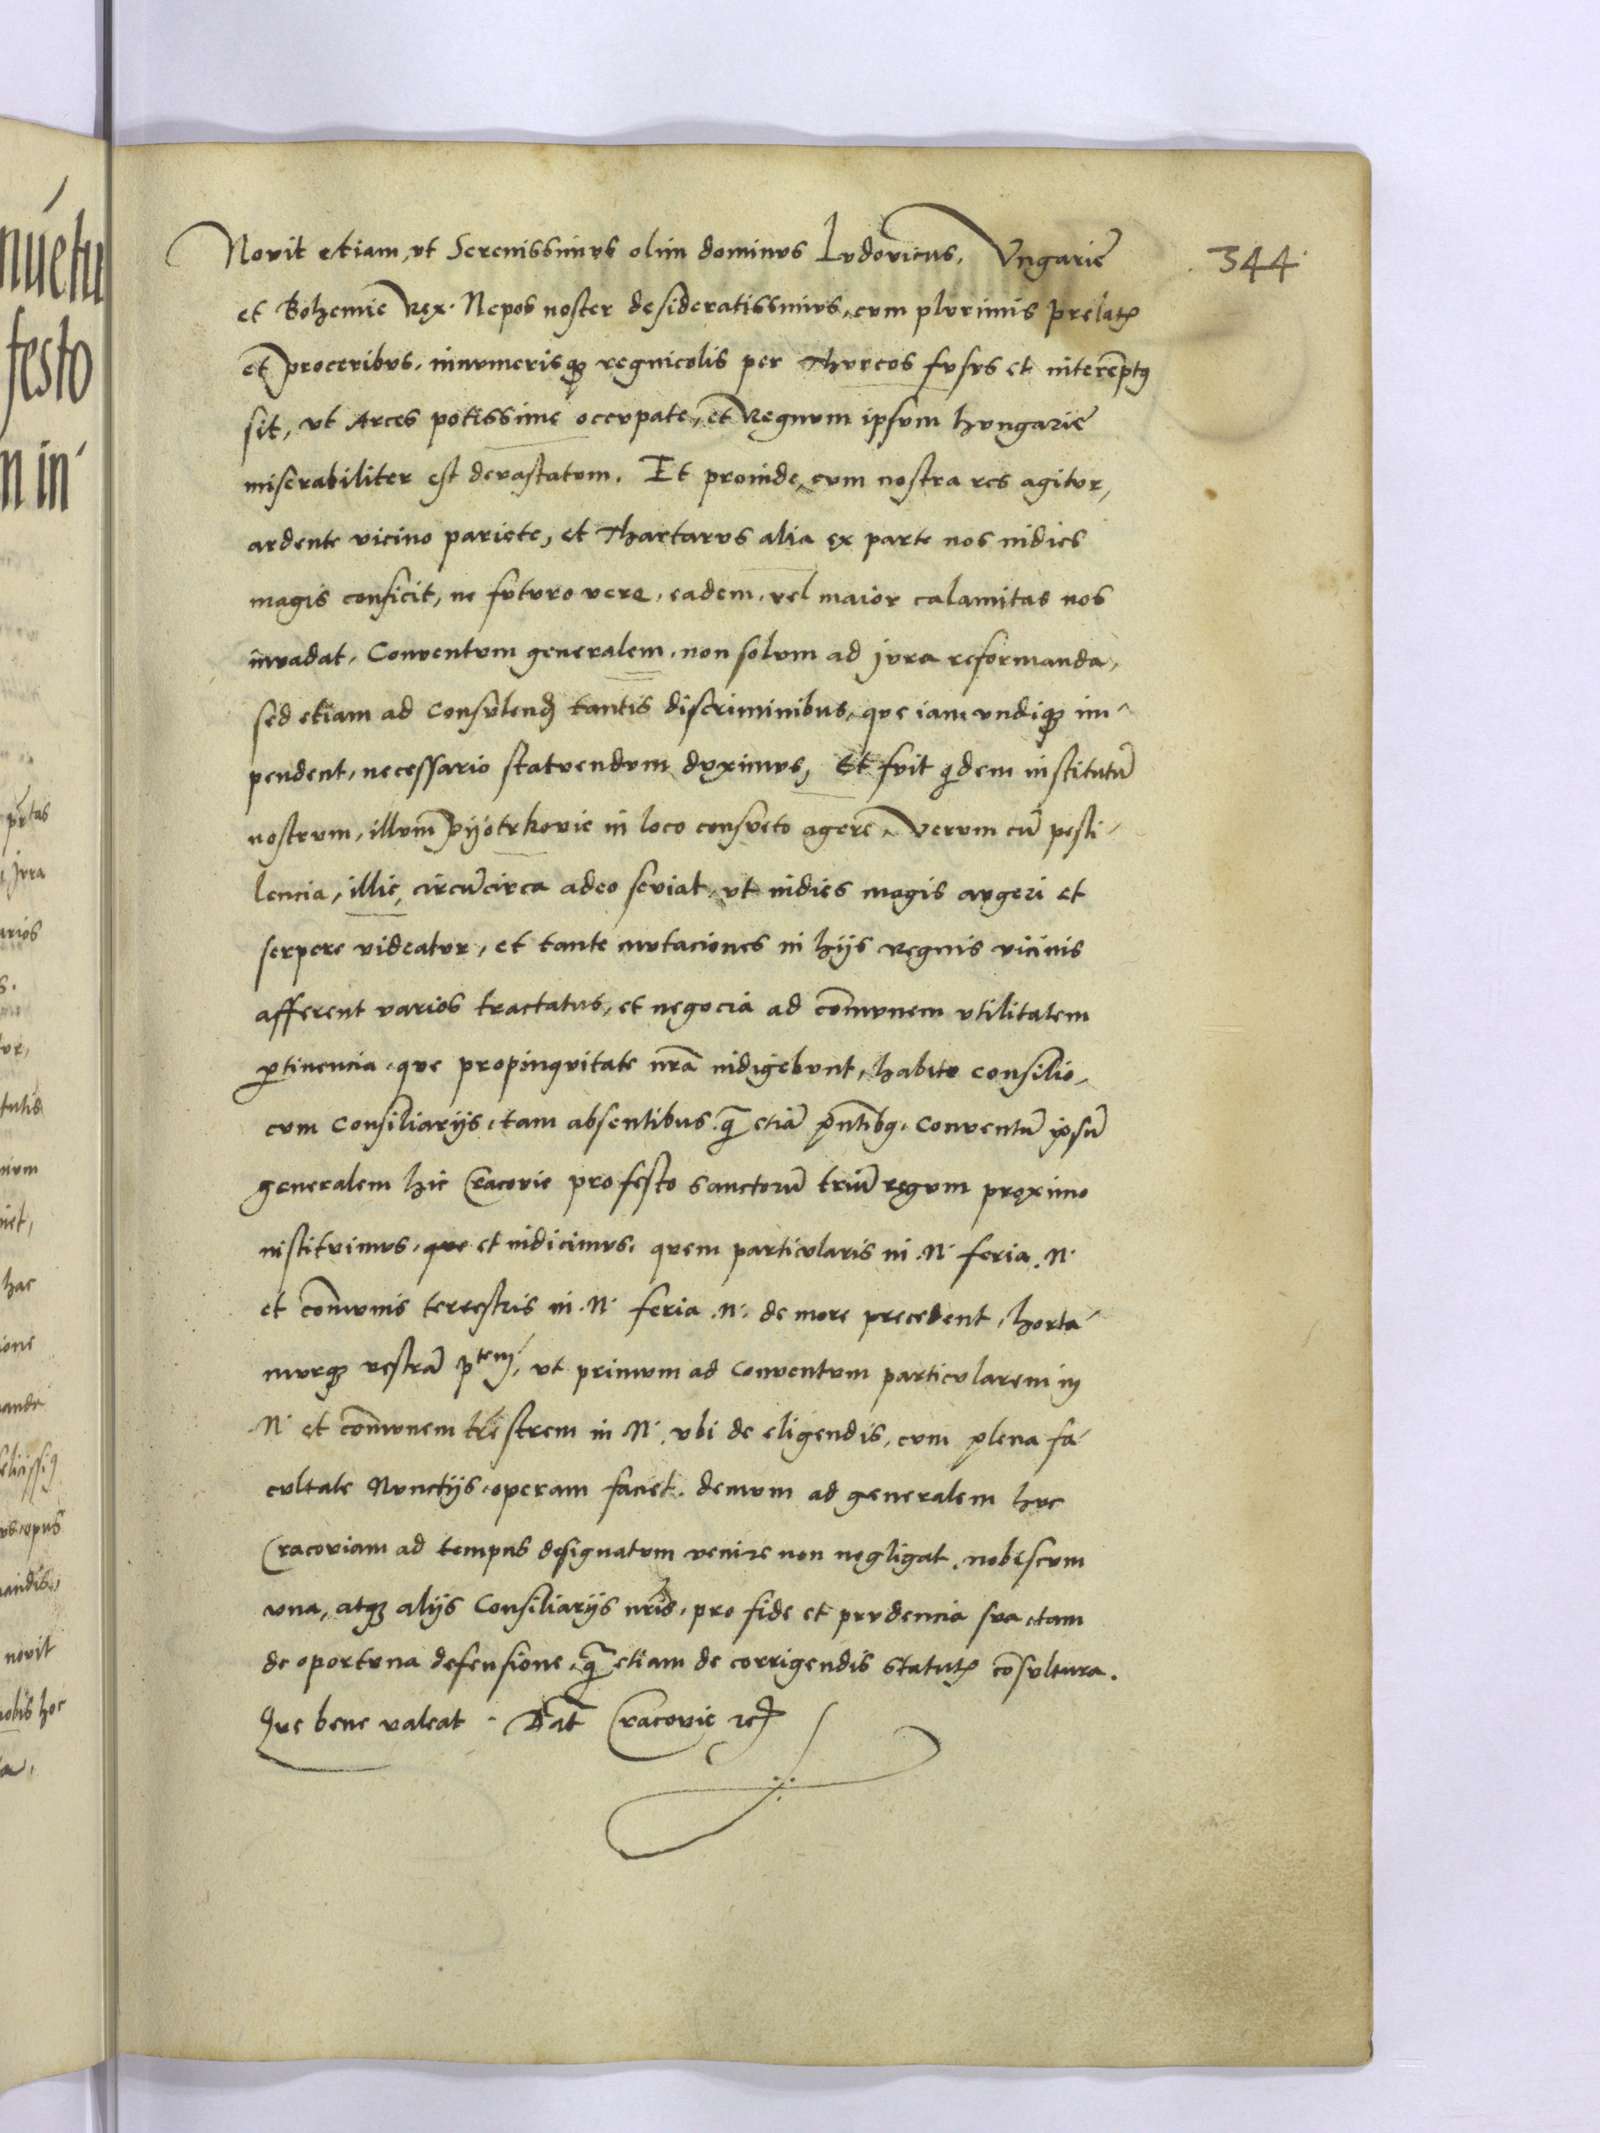 344
Novit etiam, vt Serenissimvs olim dominvs Lvdovicus, Vngariẽ
et Bohemie Rex. Nepos noster desideratissimvs, cvm plvrimis prelatꝭ
et proceribvs, innvmerisqꝫ regnicolis per Thvrcos fvsvs et interẽptꝰ
sit, vt Arces potissimę occvpate, et Regnvm ipsvm hvngariẽ
miserabiliter est devastatvm. Et proinde, cvm nostra res agitvr,
ardente vicino pariete, et Thartarvs alia ex parte nos indies
magis conficit, ne fvtvro vere, eadem, vel maior calamitas nos
invadat, Conventvm generalem, non solvm ad jvra reformanda,
sed etiam ad Consvlendꝫ tantis discriminibus, qve iam vndiqꝫ im-
pendent, necessario statvendvm dvximvs, Et fvit qdem institutũ
nostrvm, illvm Pijotrkovie in loco consveto agerẽ. Vervm cũ pesti-
lencia, illic, circũcirca adeo seviat, vt indies magis avgeri et
serpere videatvr, et tante mvtaciones in hijs regnis vicinis
afferent varios tractatus, et negocia ad cõmvnem vtilitatem
ꝑtinencia, qve propinqvitate nrã indigebvnt, habito consilio,
cvm Consiliarijs, tam absentibus q̃ etiã pntibꝰ, Conventũ ipsũ
generalem hic Cracovie pro festo sanctorũ triũ regvm proximo
institvimvs, qve et indicimvs, qvem particvlaris in .N. feria .N.
et cõmvnis terrestris in .N. feria .N. de more precedent, horta-
mvrqꝫ vestrã ptem, vt primvm ad Conventvm particvlarem in
.N. et cõmvnem trẽstrem in .N. vbi de eligendis, cvm plena fa-
cvltate Nvnctijs, operam faciet, demvm ad generalem hvc
Cracoviam ad tempus designatvm venire non negligat, nobiscvm
vna, atqꝫ alijs Consiliarijs nrĩs, pro fide et prvdencia sva, tam
de oportvna defensione, q̃ etiam de corrigendis statutꝭ cõsvltura.
Qve bene valeat. Dat̃ Cracovie ꝛcꝫ